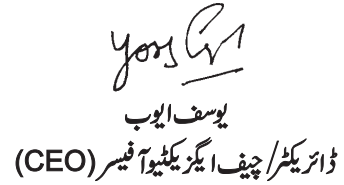 یوسف ایوب
ڈائریکٹر/چیف ایگزیکٹیو آفیسر (CEO)